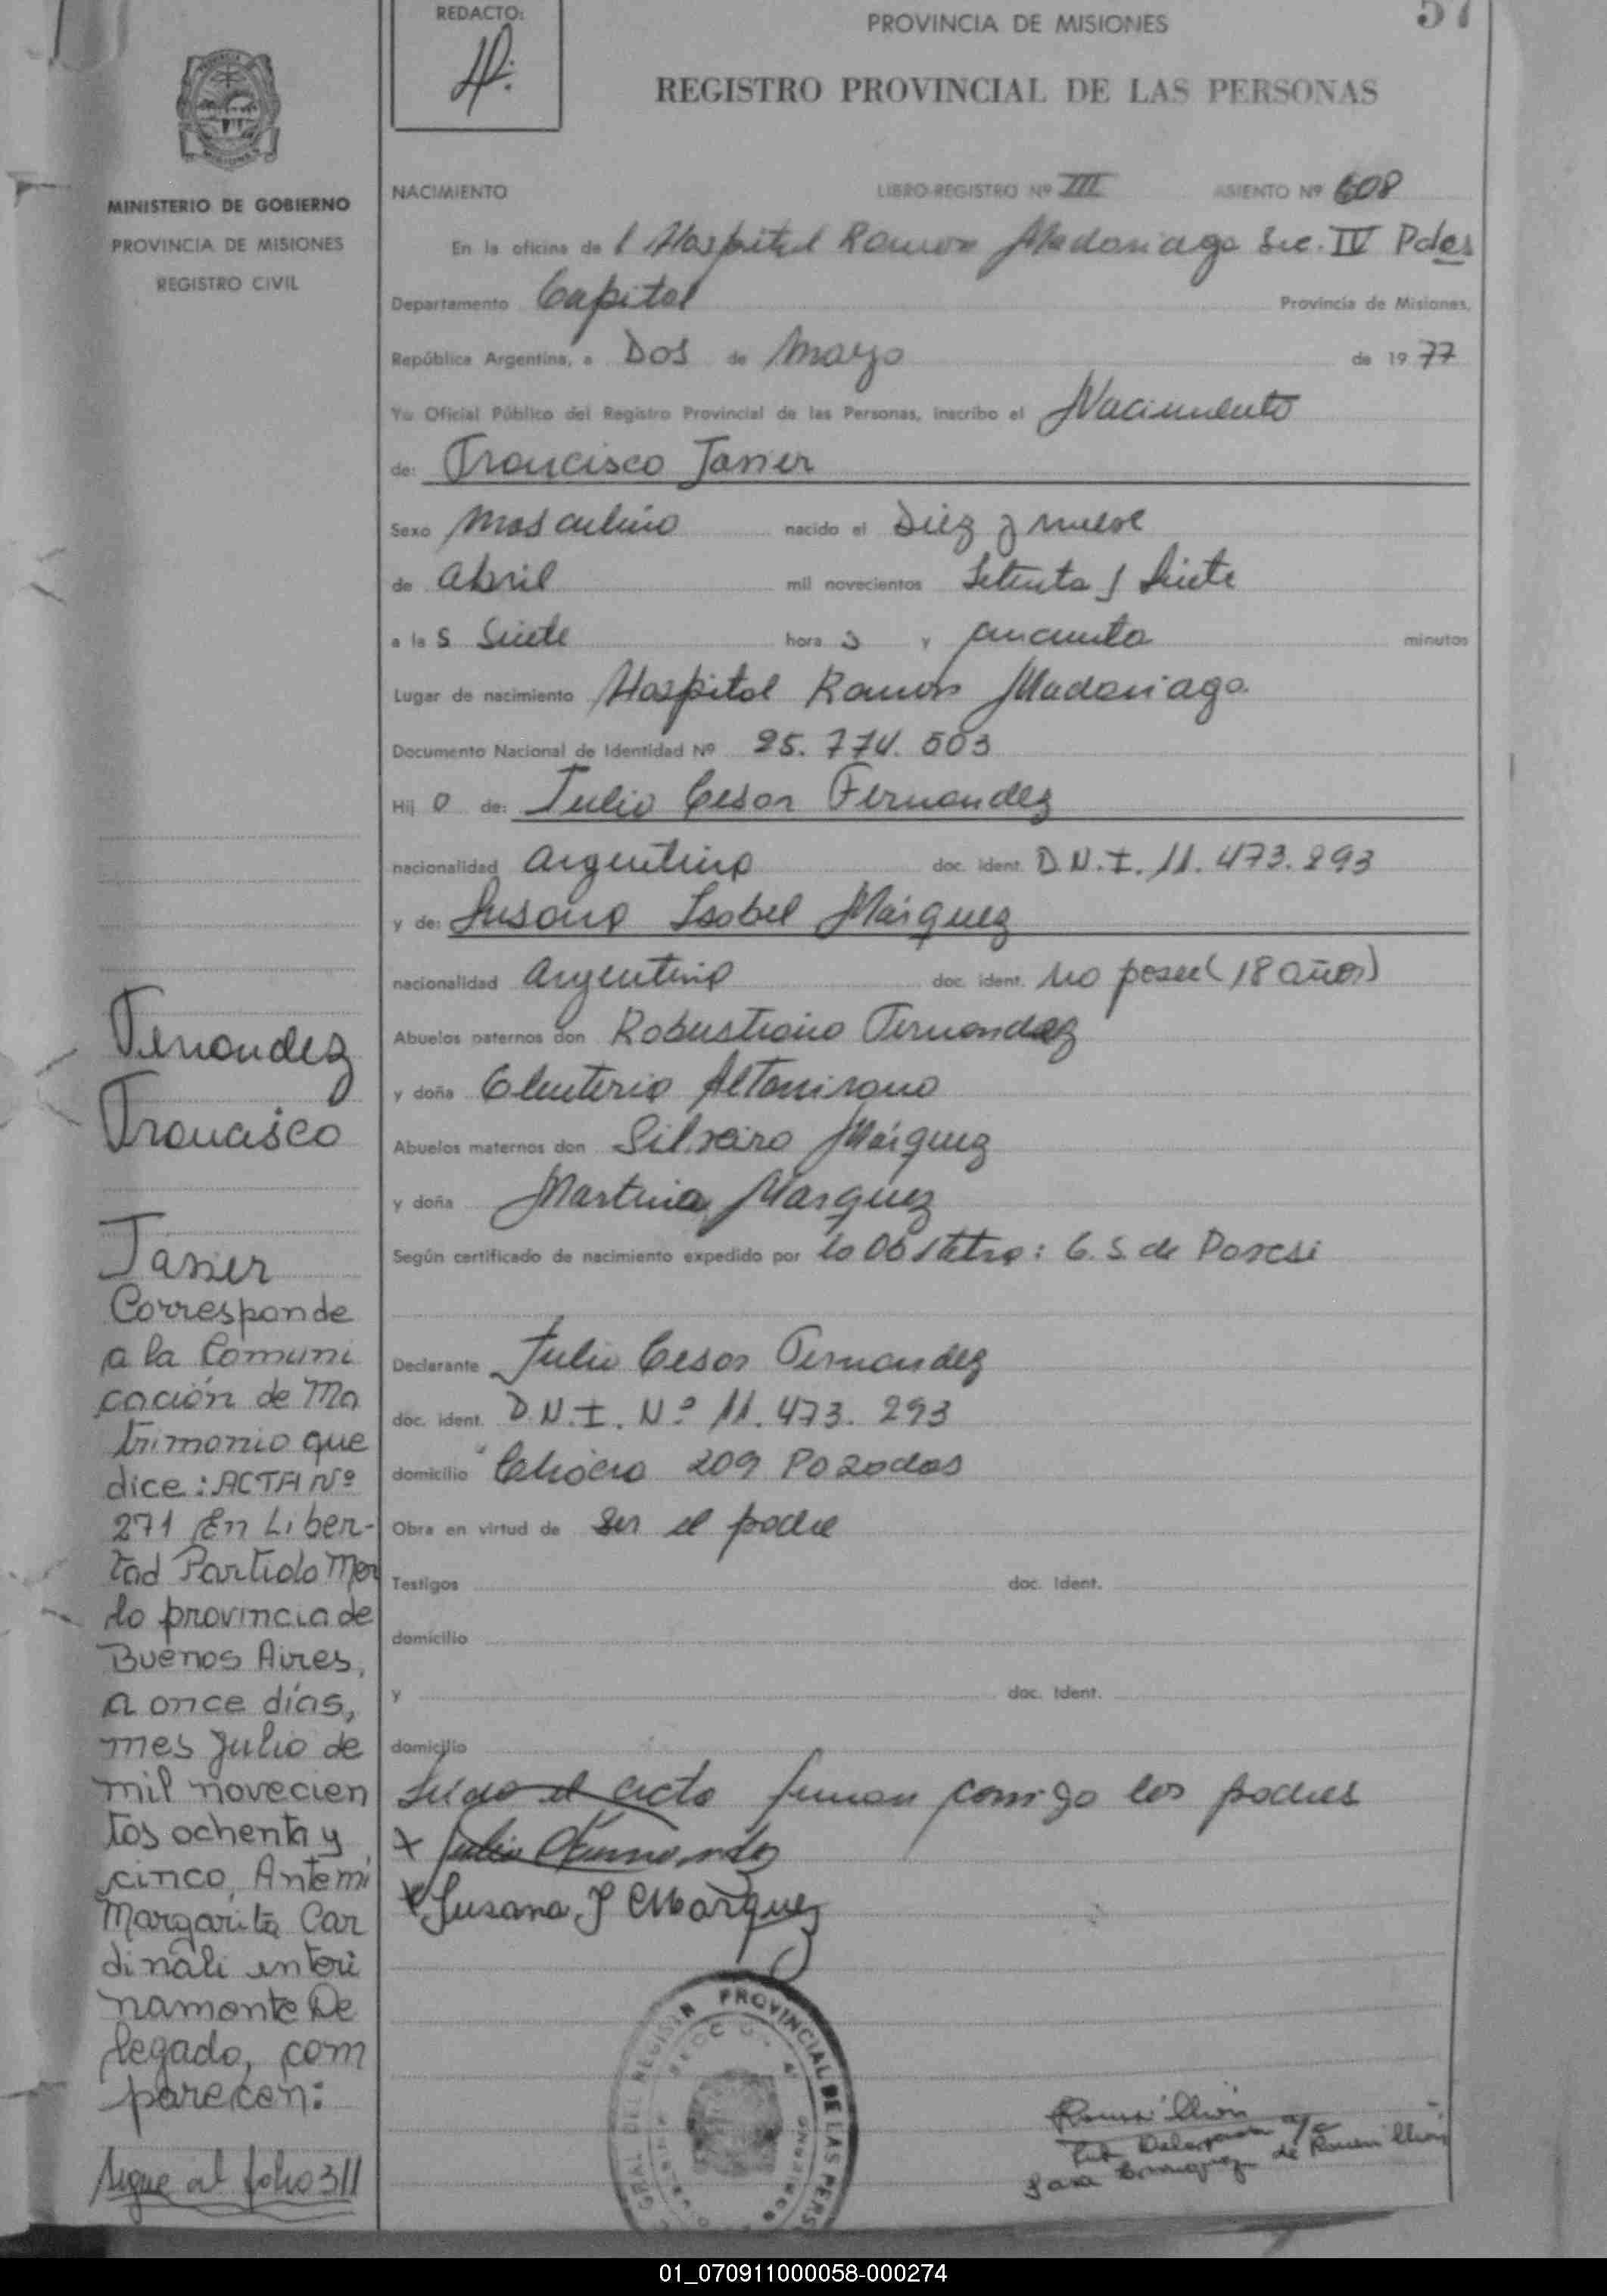 REDACTO:
PROVINCIA DE MISIONES
57
REGISTRO PROVINCIAL DE LAS PERSONAS
MINISTERIO DE GOBIERNO
PROVINCIA DE MISIONES
REGISTRO CIVIL
NACIMIENTO LIBRO-REGISTRO Nº III ASIENTO Nº 608
En la oficina de l Hospital Ramon Madariaga Sec. IV Pdas
Departamento Capital Provincia de Misiones,
República Argentina, a Dos de Mayo de 1977
Yo Oficial Público del Registro Provincial de las Personas, inscribo el Nacimiento
de: Francisco Javier
Sexo Masculino nacido el Diez y nueve
de abril mil novecientos Setenta y Siete
a la s Siete hora s y cincuenta minutos
Lugar de nacimiento Hospital Ramon Madariaga
Documento Nacional de Identidad Nº 25.774.503
Hij o de: Julio Cesar Fernandez
nacionalidad argentina doc. ident. D.N.I. 11.473.293
y de: Susana Isabel Márquez
nacionalidad argentina doc. ident. no posee (18 años)
Abuelos paternos don Robustiano Fernandez
y doña Eleuteria Altamirano
Abuelos maternos don Silveiro Márquez
y doña Martina Márquez
Según certificado de nacimiento expedido por la Obstetra: G. S. de
Declarante Julio Cesar Fernandez
doc. ident. D.N.I. Nº 11.473.293
domicilio 209 Posadas
Obra en virtud de ser el padre
Testigos doc. Ident.
domicilio
y doc. Ident.
domicilio
Leida el acta firman conmigo los padres
x Julio Fernandez
x Susana I Marquez
Fernandez
Francisco
Javier
Corresponde
a la Comuni
cación de Ma
trimonio que
dice: ACTA Nº
271 En Liber-
tad Partido Mer
lo provincia de
Buenos Aires,
a once días,
mes Julio de
mil novecien
tos ochenta y
cinco, Antemi
Margarita Car
dinali interi
namente De
legado, com
parecen:
Sigue al folio 311
PROVINCIAL DE LAS PERS
01_070911000058-000274